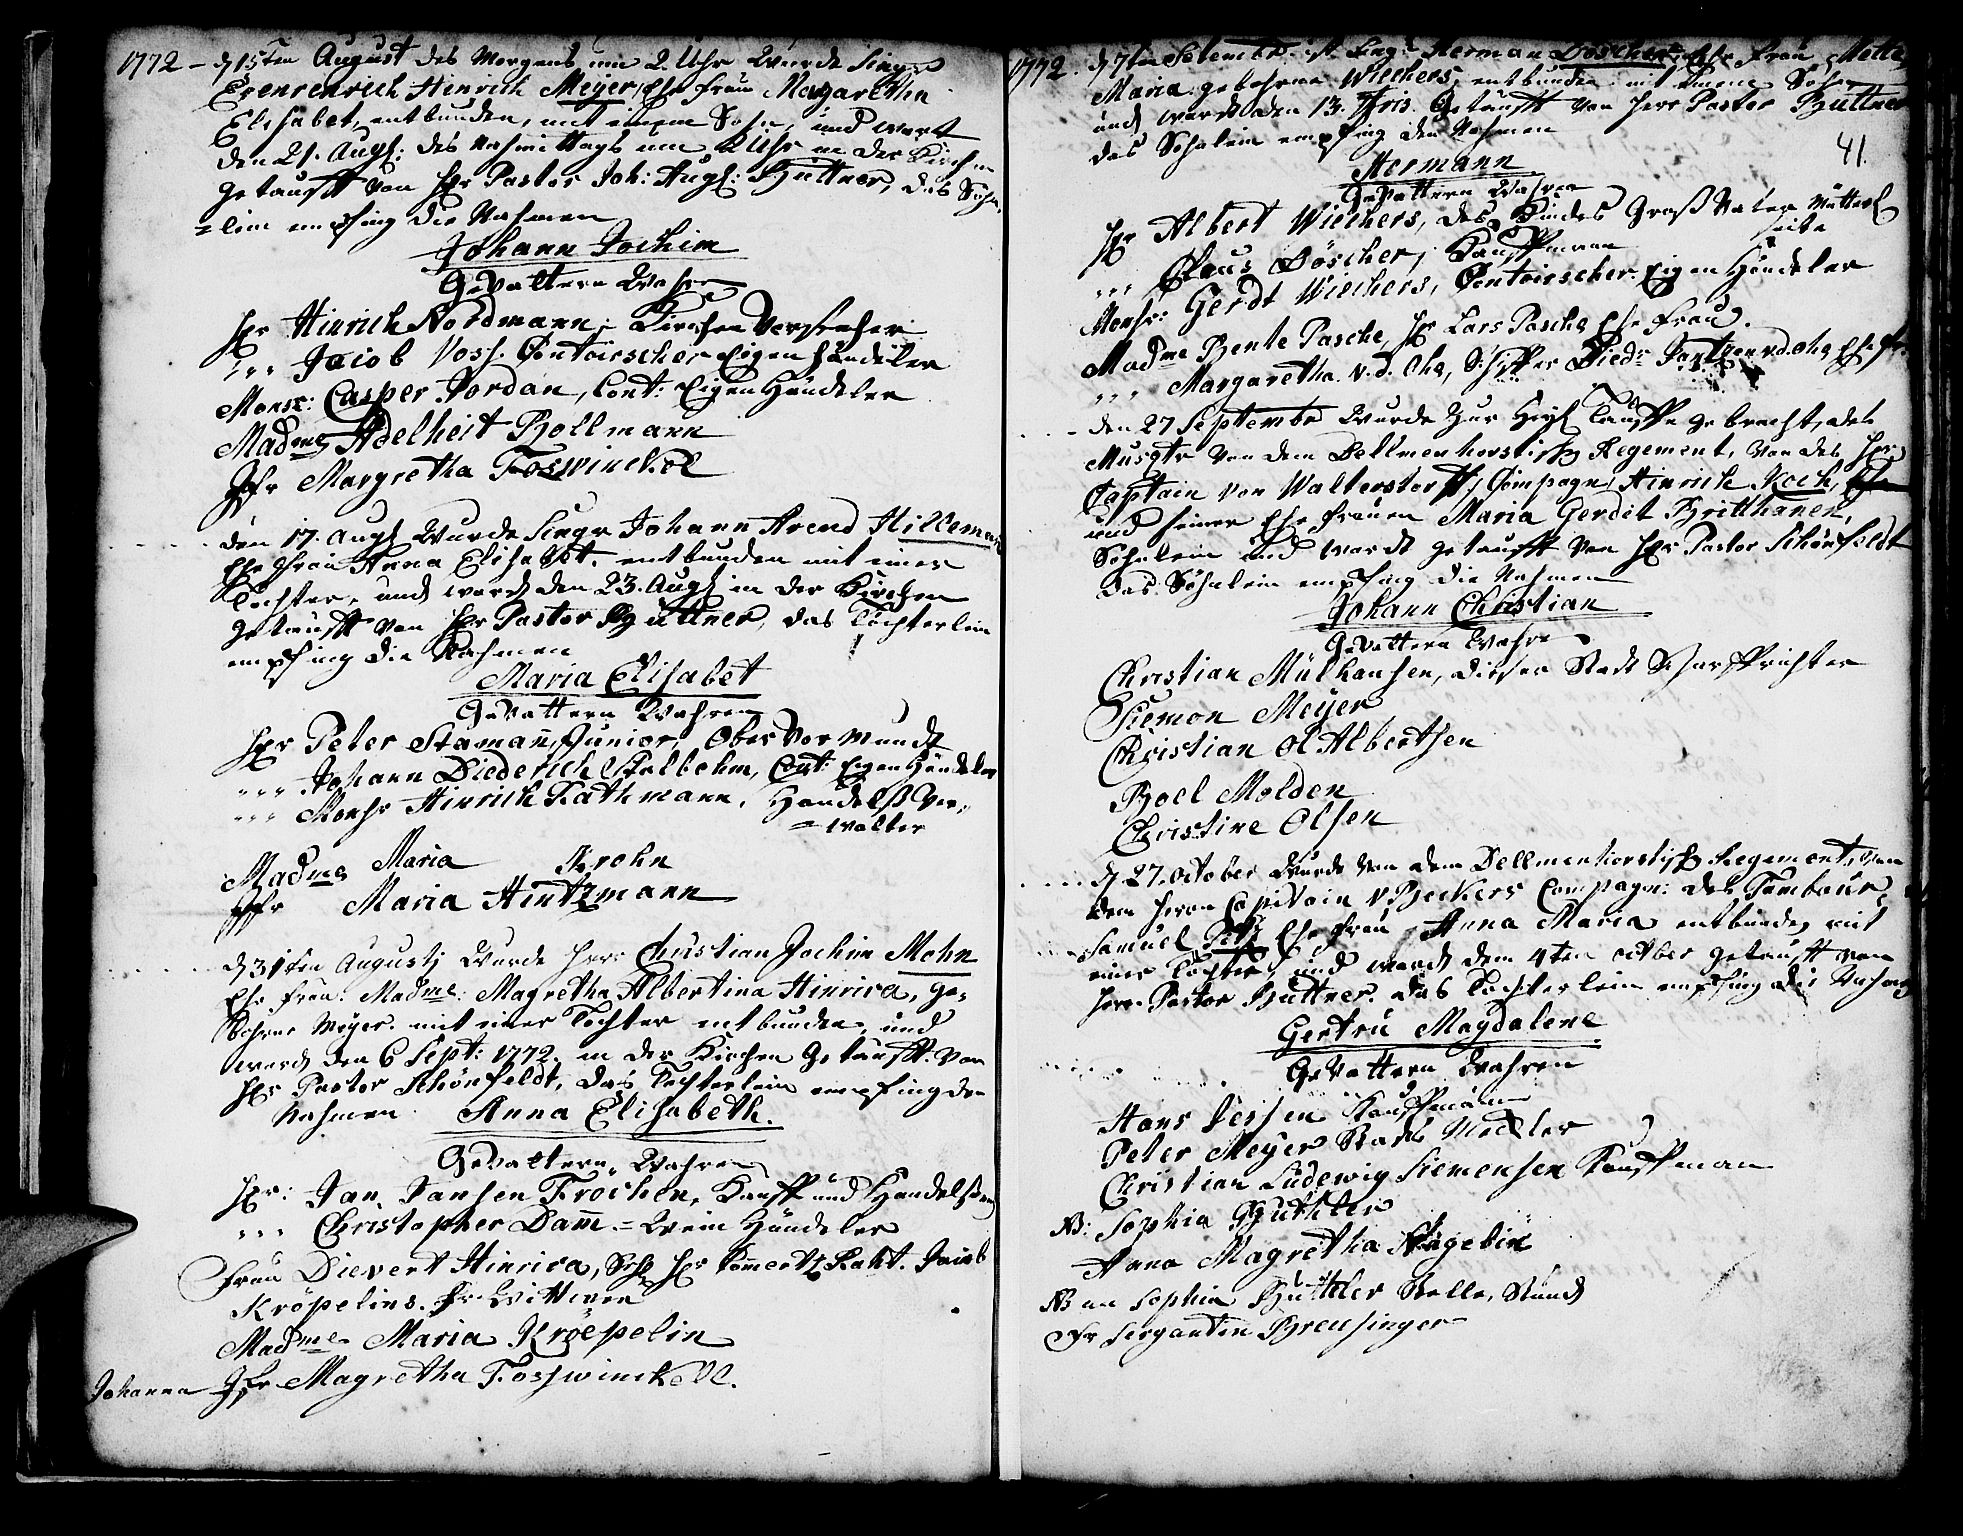 1772 – d 15ten August des Morgens um 2 Uhr Wurde Singr
Erenrenrich Hinrich Meyer, Ehe frau Magaretha
Elisabet, entbunden, mit einem Sohn, und wart
den 21. Augs: des Nahmittags um 2 Uhr in der Kirchen
getaufft von Hr Pastor Joh: Augs: Büttner, das Söhn,
=lein empfing die Nahmen
Johann Jochim
Gevattern Wahren
Hr Hinrich Nordmann, Kirchen Vorsteher
,,, Jacob Voss. Contoirscher Eigen händeler
Monsr: Casper Jordan, Cont: Eigen Händeler
Madme Adelheit Bollmann
Jfr Margretha Foswinckel
den 17. Augs Wurde Singr Johann Arend Hilleman
Ehe frau Anna Elisabet. entbunden mit einer
Tochter, und ward den 23. Augs in der Kirchen
getaufft von Hr Pastor Büttner, das Töchterlein
empfing die Nahmen
Maria Elisabet
Gevattern Wahren
Hr Peter Stamañ, Junior, Ober Vormundt
,,, Johann Diederich Stelbohm, Cont: Eigen Händeler
,,, Monsr Hinrich Rathmann, Handelß Ver,
=walter
Madme Maria Krohn
Jfr Maria Hintzmann
d 31ten Augustj Wurde Herr Christian Jochim Mohn
Ehe frau: Madme: Magretha Albertina Hinrica, ge,
bohrne Meyer. mit einer Tochter entbunden, und
ward den 6 Sept: 1772. in der Kirchen Getaufft von
Hr Pastor Schönfeldt, das Tochterlein empfing den
Nahmen Anna Elisabeth.
Gevattern Wahren
Hr: Jan Jansen Trochen, Kauff und Handelßman
,,, Christopher Dam̄ = Wein Händeler
Frau Dievert Hinrica, Sehl Hr Com̄ertz Raht. Jacob
Kröpelins. Fr Wittwen
Madme Maria Kröepelin
Johanna Jfr Magretha Fosswinckell.
1772. d 7ten Setember ist Singr Herman Döscher, Ehe frau, Mette
Maria gebohrne Wiechers, entbunden mit einem Sohn
und ward den 13. Hris. Getaufft von Herr Pastor Büttner
das Söhnlein empfing den Nahmen
41.
Hermann
Gevattern Wahren
Hr Albert Wiechers, des Kindes Groß Vater Mütterl
seite
,,, Claus Döscher, Kauffmann
Monsr: Gerdt Wiechers, Contoirscher Eigen Händeler
Madme Bente Pasche, Hr Lars Pasche Ehe Frau.
,,, Margaretha v. d. Ohe, Schiffer Diedr Jantzen v. d. ohe Ehe fr.
den 27 Septembr Wurde zur Heyl Tauffe gebracht, des
Musqtr von dem Dellmenhorstisch Regement, von des Hr
Captain von Walterstorff, Compagn, Hinrich Koch,
und seiner Ehe frauen Maria Gerdit Britthanen,
Söhnlein und wardt getaufft von Hr Pastor Schönfeldt
das Söhnlein empfing die Nahmen
Johann Christian
Gevattern Wahr
Christian Mülhausen, dieser Stadt Scharffrichter
Siemon Meyer
Christian Ol Albertsen
Boel Molden
Christine Olsen
d 27. october Wurde von dem Dellmenhorstisch Regement, von
dem Herrn Capitain v Beckers Compagn: des Tambour
Samuel Ehe frau Anna Maria entbunden mit
einer Tochter, und ward dem 4ten octber getaufft von
Herr Pastor Büttner. das Tochterlein empfing die Nahmen
Gertru Magdalene
Gevattern Wahren
Hans Jessen Kauffmann
Peter Meyer Stadt Meckler
Christian Ludewig Siemensen Kauffman
NB: Sophia Buttler
Anna Magretha Nägelin
NB an Sophia Büttler Stelle, Stund
Fr Sergantin Breusinger